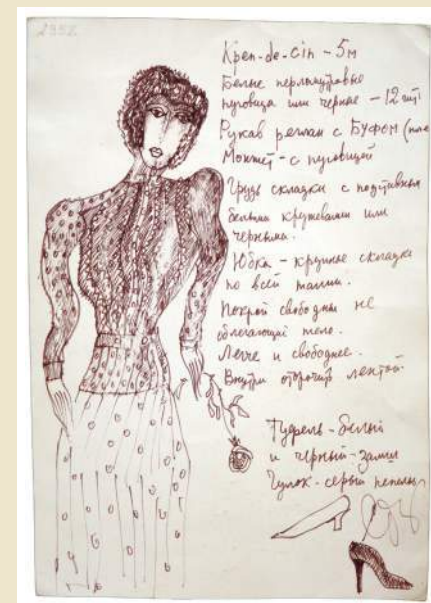 Креп-de-Cin - 5м
Белые перламутровые
пуговица или черные - 12 шт
Рукав реглан с Буфом
Манжет - с пуговицей
Грудь складки с
белыми кружевами или
черными.
Юбка - крупные складки
по всей талии.
Покрой свободный не
облегающий тело.
Легче и свободнее.
Внутри оторочить лентой.
Туфель - белый
и черный - замш
Чулок - серый